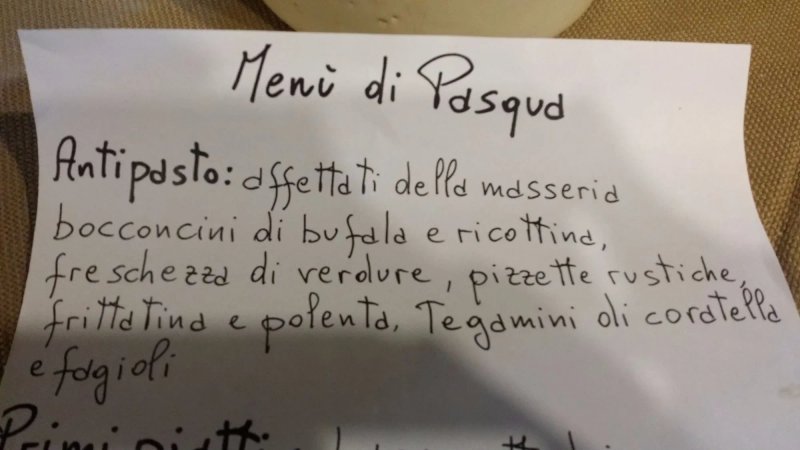 Menù di Pasqua
Antipasto: affettati della masseria
bocconcini di bufala e ricottina,
freschezza di verdure, pizzette rustiche,
frittatina e polenta, Tegamini di coratella
e fagioli
Primi piatti